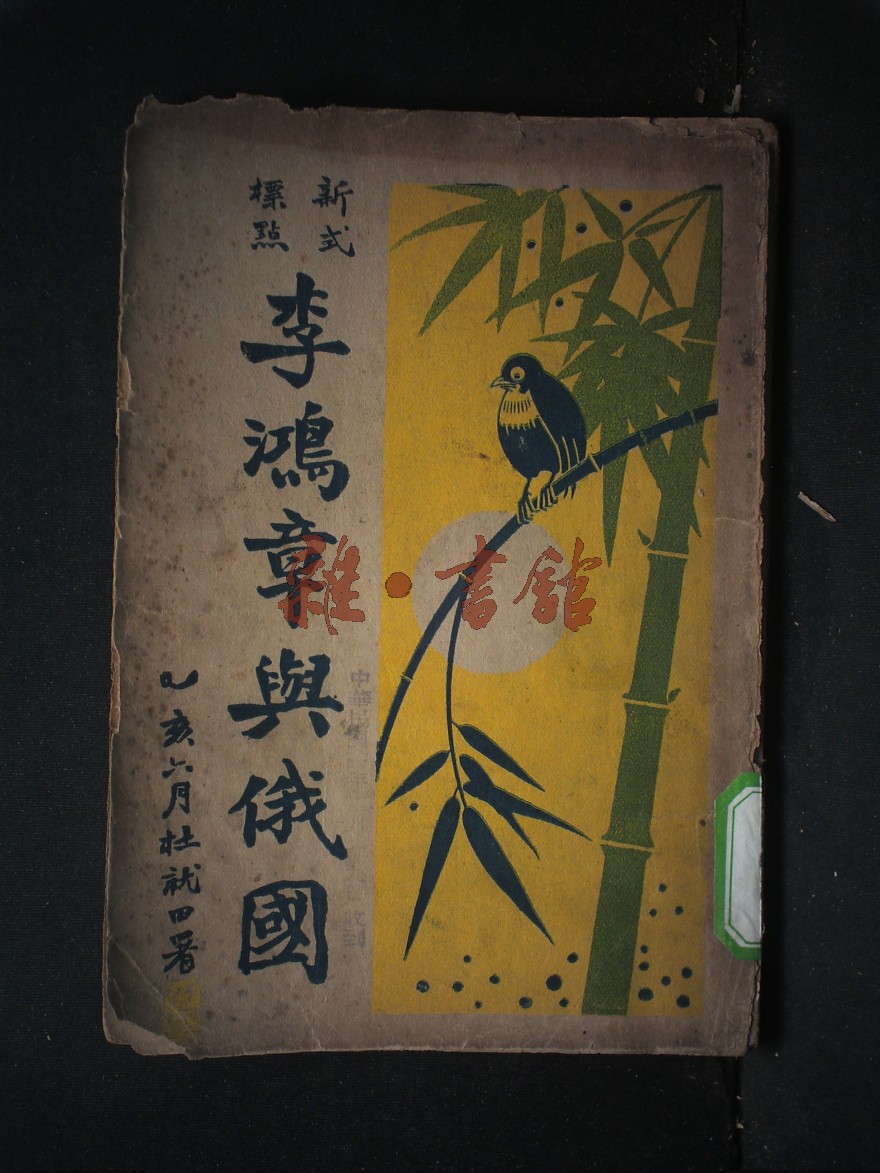 新式
標點
李鴻章與俄國
乙亥六月杜就田署
雜·書館